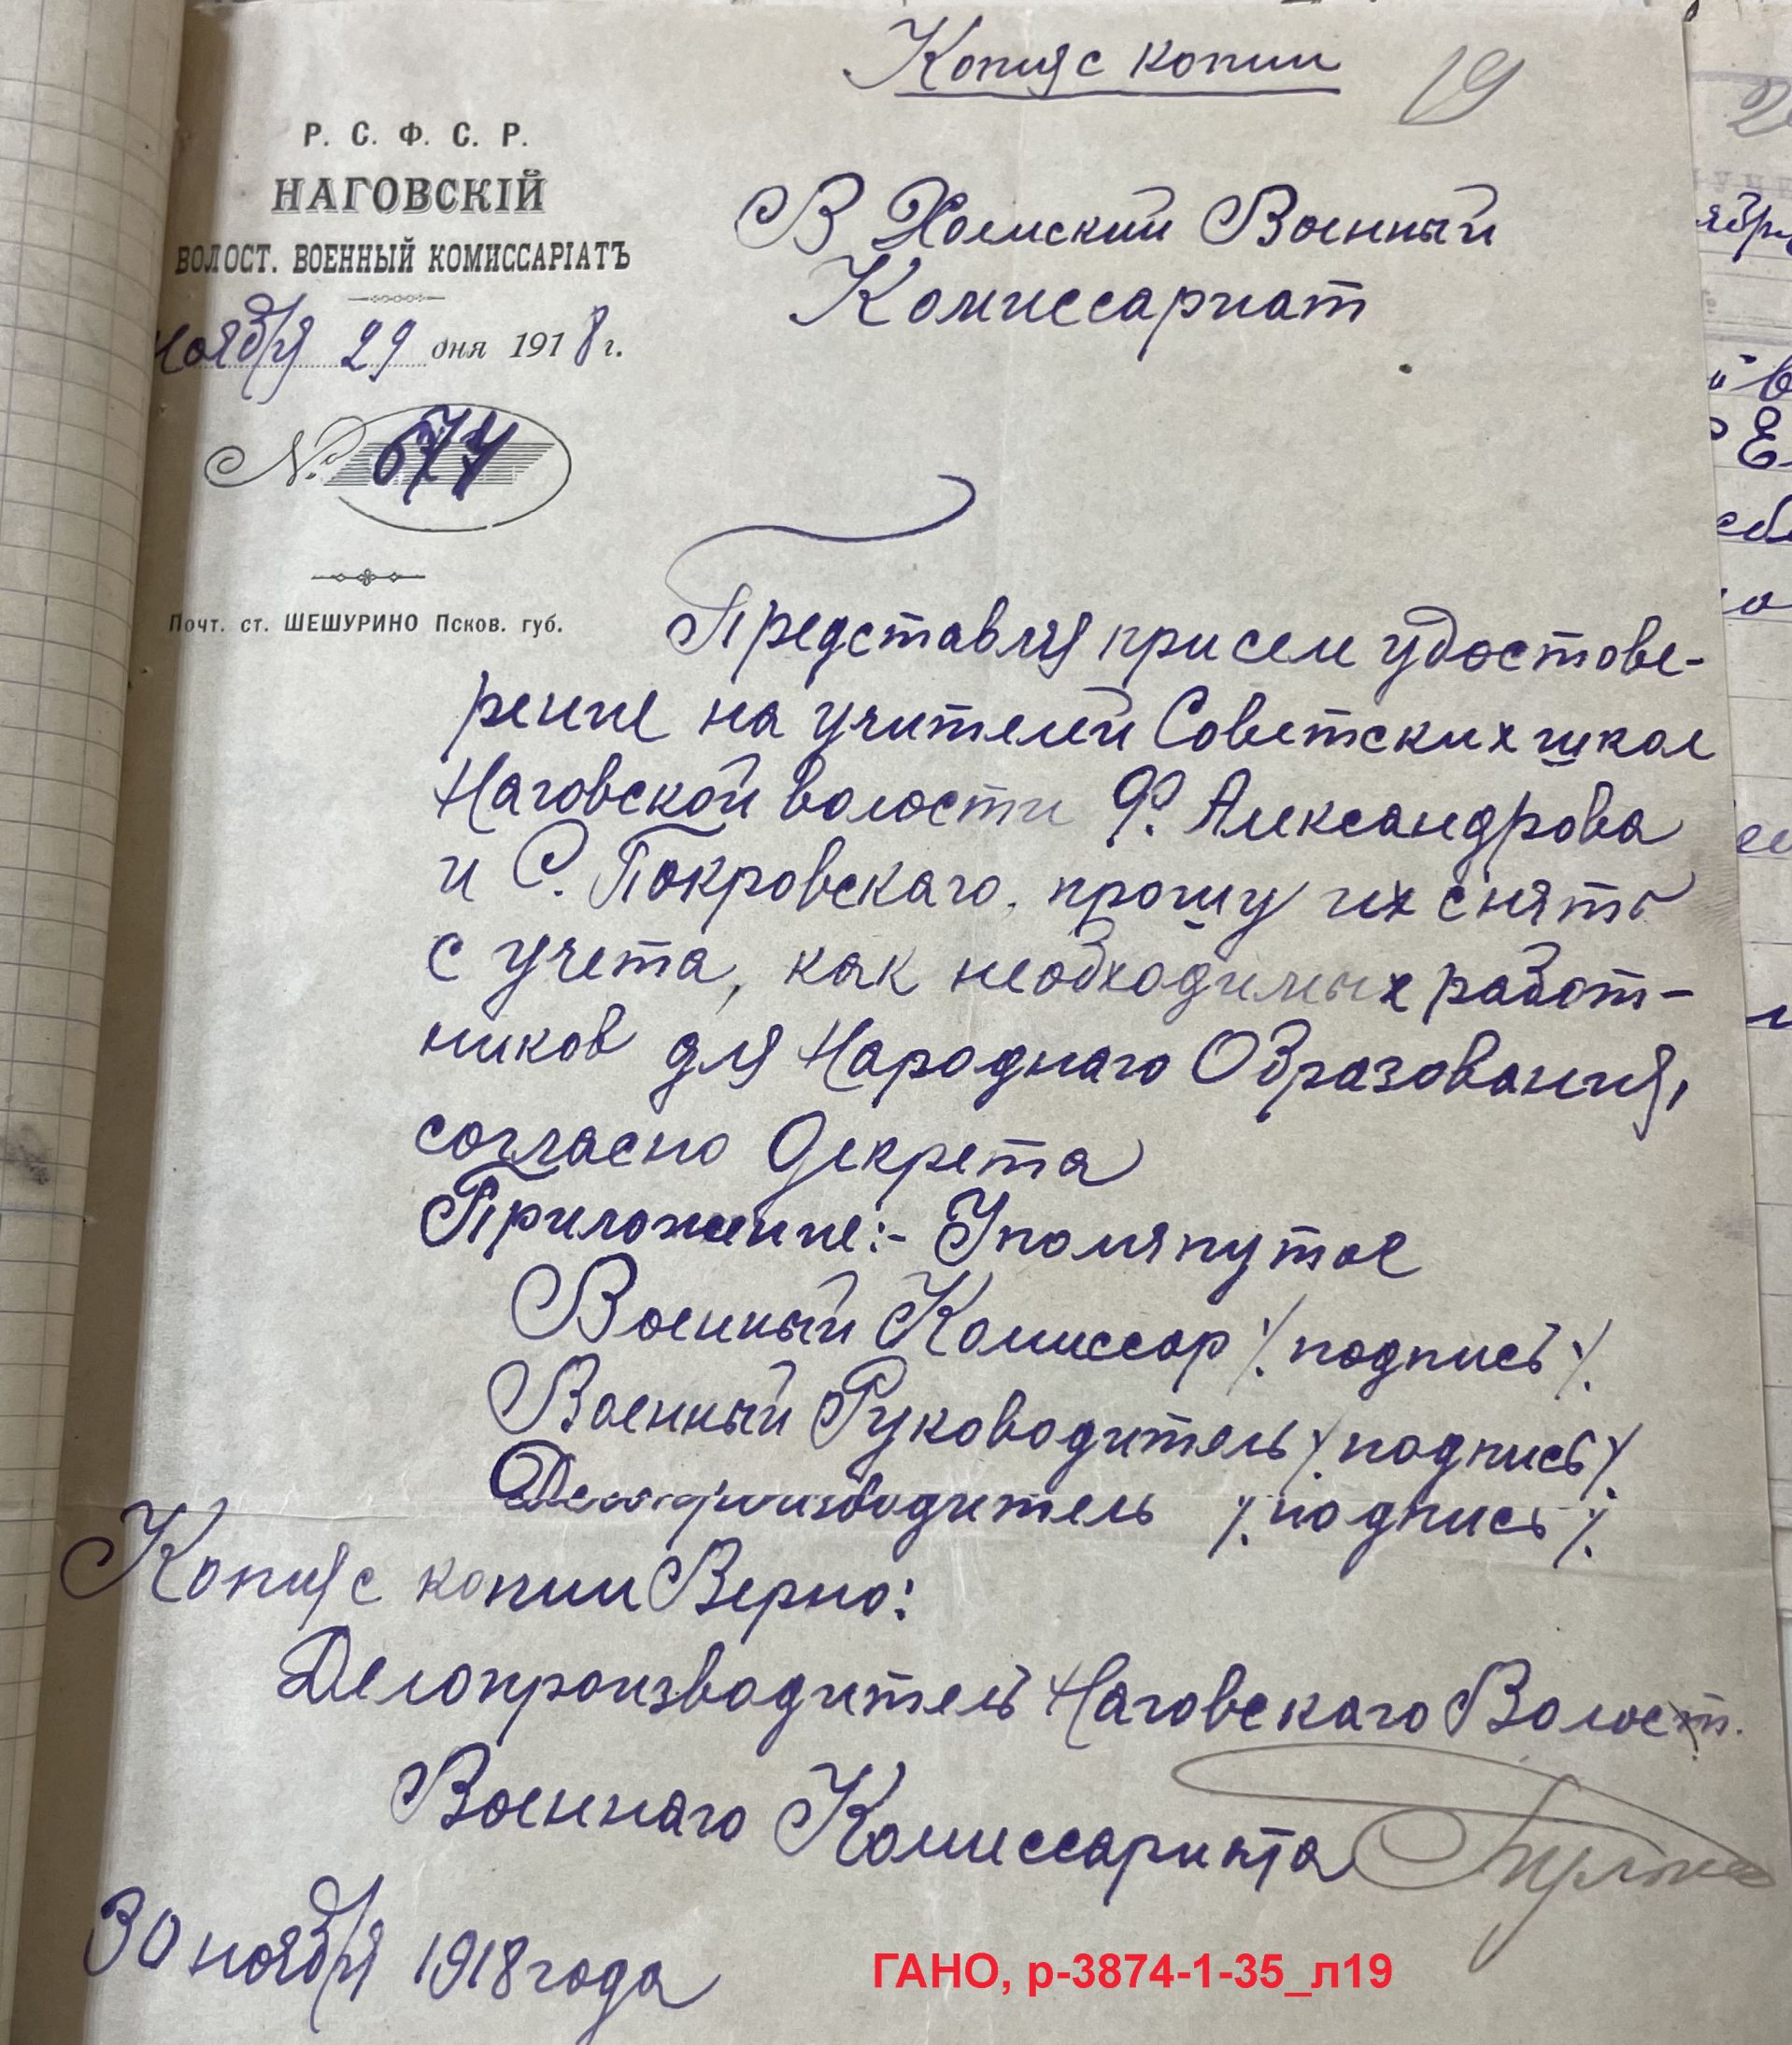 Копия с копии
19
Р. С. Ф. С. Р.
НАГОВСКІЙ
ВОЛОСТ. ВОЕННЫЙ КОМИССАРІАТЪ
Ноября 29 дня 1918 г.
№ 674
Почт. ст. ШЕШУРИНО Псков. губ.
В Холмский Военный
Комиссариат
Представляя при сем удостове-
рение на учителей Советских школ
Наговской волости Ф. Александрова
и С. Покровскаго, прошу их снять
с учета, как необходимых работ-
ников для Народнаго Образования,
согласно Декрета
Приложение:- Упомянутое
Военный Комиссар /. подпись /.
Военный Руководитель /. подпись /.
Делопроизводитель /. подпись /.
Копия с копии Верно:
Делопроизводитель Наговскаго Волост.
Военнаго Комиссариата
30 ноября 1918 года
ГАНО, р-3874-1-35_л19